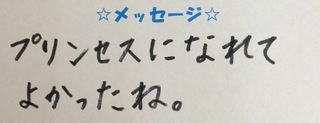 ☆メッセージ☆
プリンセスになれて
よかったね。